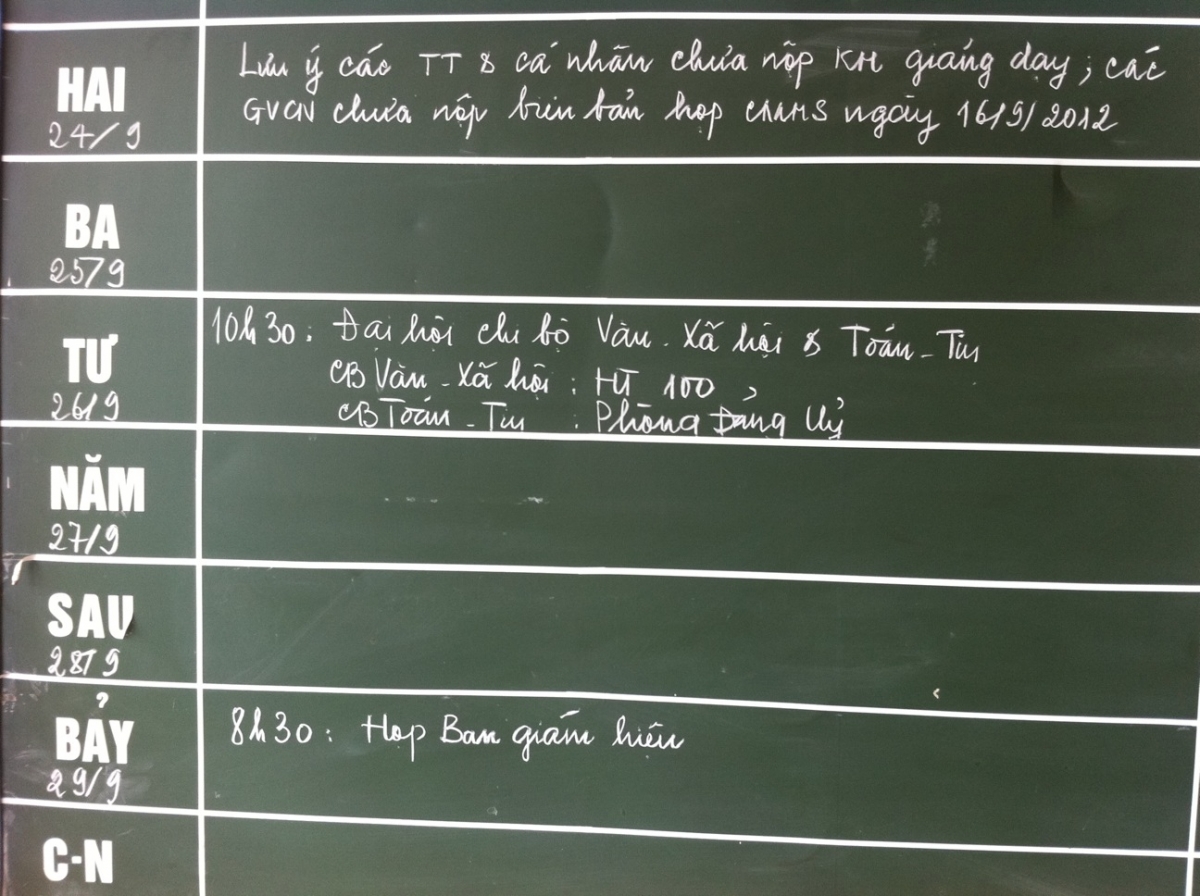 HAI
24/9
Lưu ý các TT & cá nhân chưa nộp KH giảng dạy; các
GVCN chưa nộp biên bản họp CMHS ngày 16/9/2012
BA
25/9
TƯ
26/9
10h30: Đại hội chi bộ Văn - Xã hội & Toán - Tin
CB Văn - Xã hội : HT 100
CB Toán - Tin : Phòng Đảng Uỷ
NĂM
27/9
SAU
28/9
BẢY
29/9
8h30: Họp Ban giám hiệu
C-N